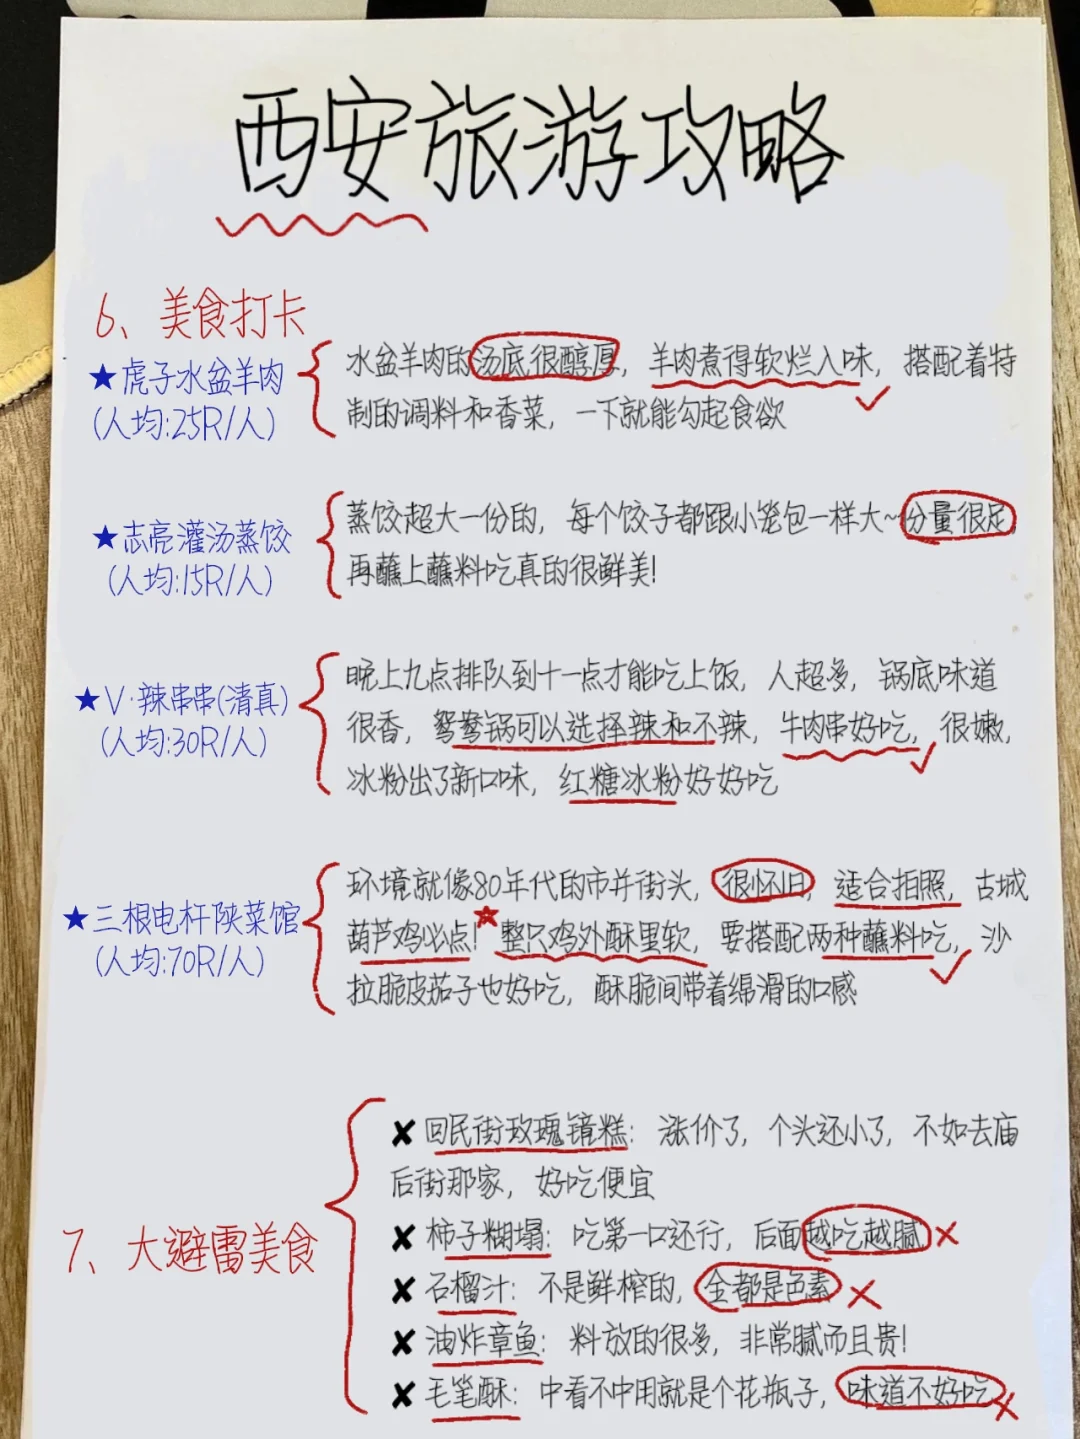 西安旅游攻略
6、美食打卡
★虎子水盆羊肉
(人均:25R/人)
水盆羊肉的汤底很醇厚，羊肉煮得软烂入味，搭配着特
制的调料和香菜，一下就能勾起食欲
★志亮灌汤蒸饺
(人均:15R/人)
蒸饺超大一份的，每个饺子都跟小笼包一样大~份量很足，
再蘸上蘸料吃真的很鲜美!
★V·辣串串(清真)
(人均:30R/人)
晚上九点排队到十一点才能吃上饭，人超多，锅底味道
很香，鸳鸯锅可以选择辣和不辣，牛肉串好吃，很嫩，
冰粉出了新口味，红糖冰粉好好吃
★三根电杆陕菜馆
(人均:70R/人)
环境就像80年代的市井街头，很怀旧，适合拍照，古城
葫芦鸡必点!★整只鸡外酥里软，要搭配两种蘸料吃，沙
拉脆皮茄子也好吃，酥脆间带着绵滑的口感
7、大避雷美食
✘回民街玫瑰镜糕：涨价了，个头还小了，不如去庙
后街那家，好吃便宜
✘柿子糊塌：吃第一口还行，后面越吃越腻
✘石榴汁：不是鲜榨的，全都是色素
✘油炸章鱼：料放的很多，非常腻而且贵!
✘毛笔酥：中看不中用就是个花瓶子，味道不好吃